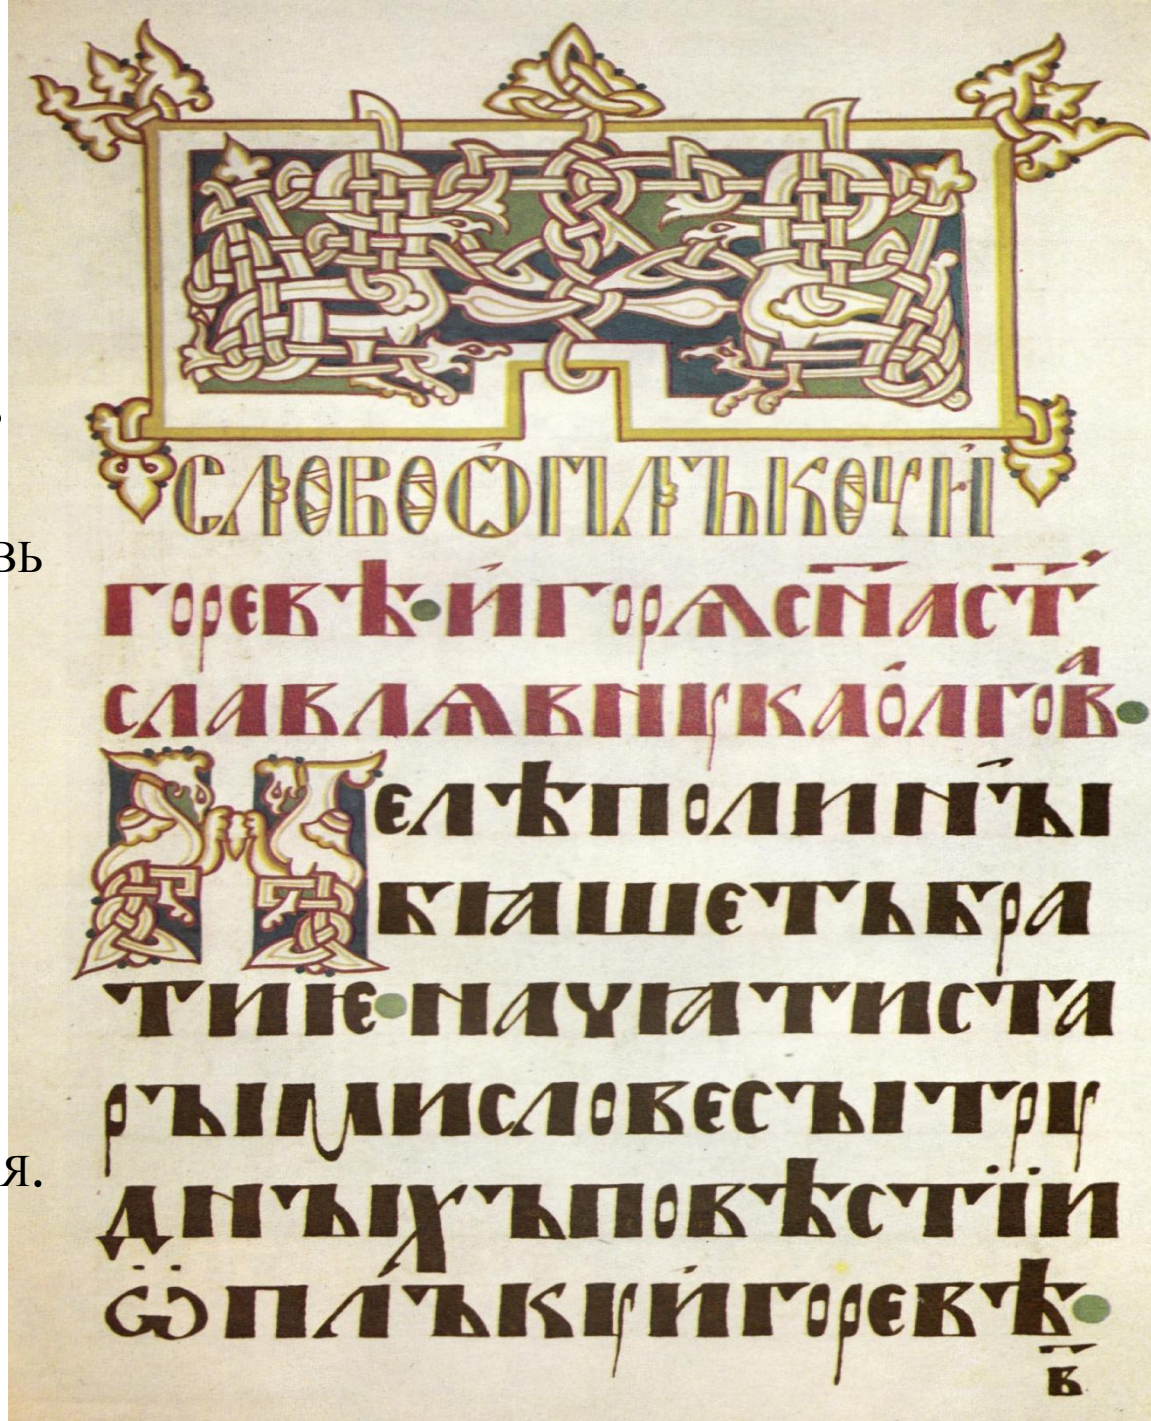 СЛОВОѠПЛЪКОУИ
ГОРЕВѢ·ИГОРѦСН҃АСТ҃
СЛАВЛѦВНУКАОЛГОВᲵа·
НЕЛѢПОЛИНЪІ
вь
БꙖШЕТЬБРА
ТИѤ·НАЧꙖТИСТА
РЪІМИСЛОВЕСЪІТРУ
я.
ДНЪІХЪПОВѢСТЇИ
ѠПЛЪКУИГОРЕВѢ·
В҃